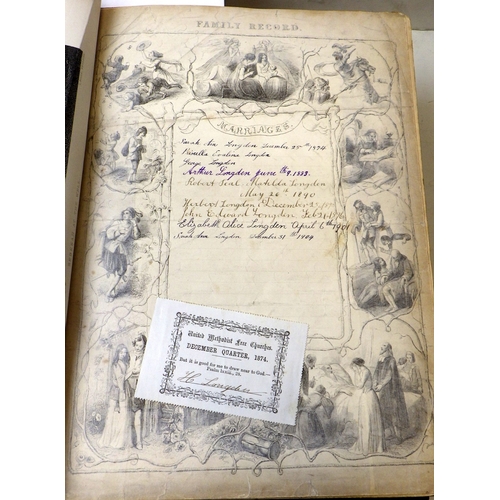 FAMILY RECORD.
MARRIAGES.
Sarah Ann Longden December 25th 1874
Evalina Longden
George Longden
Arthur Longden June 9th 1883.
Robert Matilda Longden
May 26th 1890
Herbert Longden December 25
John Edward Longden Feb 21
Elizabeth Alice Longden April 6th 1901
Sarah Ann Longden December 31st 1904
United Methodist Free Churches.
DECEMBER QUARTER, 1874.
But it is good for me to draw near to God.—
Psalm
Longden